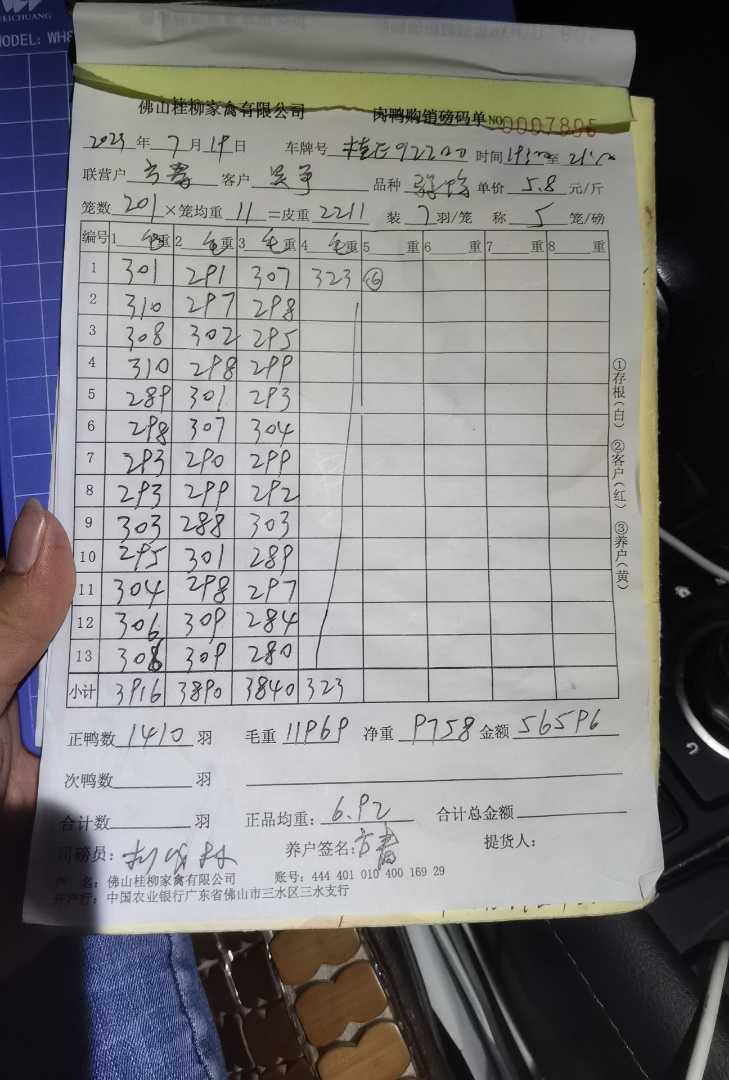 MODEL: WH
佛山桂柳家禽有限公司 肉鸭购销磅码单 NO 0007895
2023 年 7 月 19 日 车牌号 时间 至
联营户 客户 品种 单价 5.8 元/斤
笼数 201 ×笼均重 11 =皮重 2211 装 7 羽/笼 称 5 笼/磅
编号 1 毛重 2 毛重 3 毛重 4 毛重 5 重 6 重 7 重 8 重
1 301 291 307 323 ⑥
2 310 297 298
3 308 302 295
4 310 298 299
5 289 301 293
6 298 307 304
7 293 290 299
8 293 299 292
9 303 288 303
10 295 301 289
11 304 298 297
12 306 309 284
13 308 309 280
小计 3916 3890 3840 323
正鸭数 1410 羽 毛重 11969 净重 9758 金额 56596
次鸭数 羽
合计数 羽 正品均重: 6.92 合计总金额
司磅员: 养户签名: 提货人:
户 名: 佛山桂柳家禽有限公司 账号: 444 401 010 400 169 29
开户行: 中国农业银行广东省佛山市三水区三水支行
①存根(白) ②客户(红) ③养户(黄)